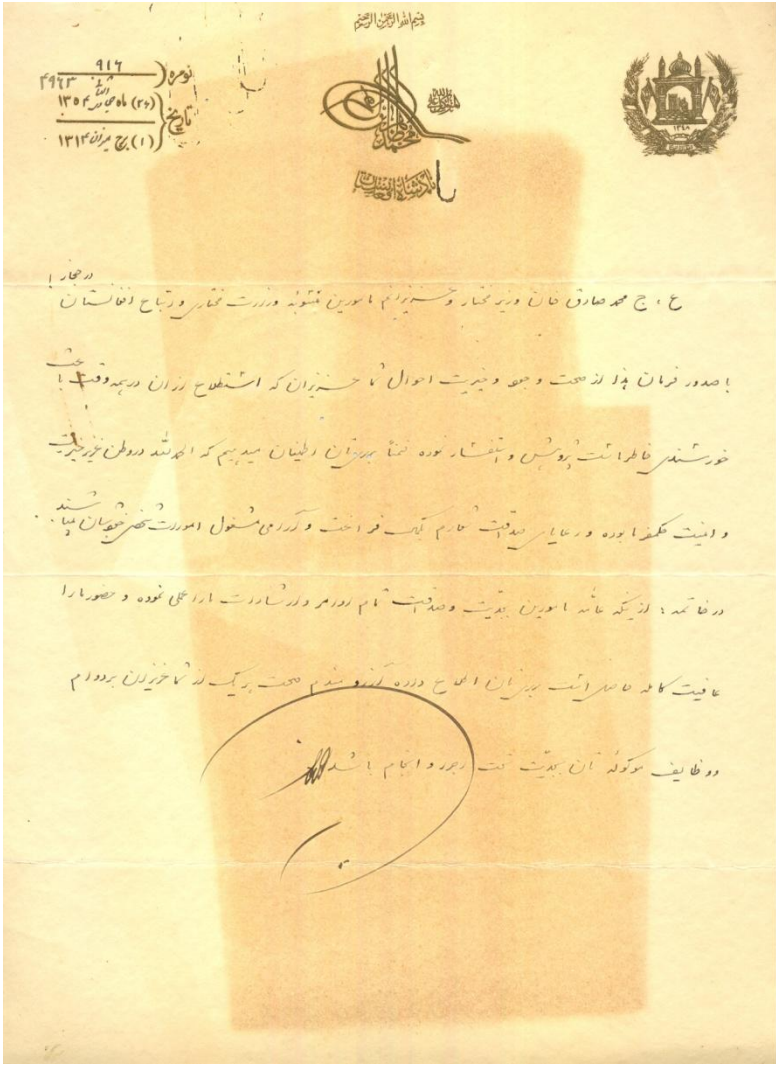 بسم الله الرحمن الرحیم
نومره ۹۱۶
۴۹۶۳
تاریخ (۲۶) ماه جمادی الثانی ۱۳۵۴
(۱) برج میزان ۱۳۱۴
المتوکل علی الله
محمد ظاهر
پادشاه افغانستان
۱۳۴۸
ع ، ج محمد صادق خان وزیر مختار و عزیزانم مامورین منسوبه وزارت مختاری و اتباع افغانستان در حجاز !
با صدور فرمان هذا از صحت و خیریت احوال شما عزیزان که استطلاع از آن در همه وقت باعث
خورسندی خاطر است پژوهش و استفسار نموده ضمناً برای تان اطمینان میدهیم که الحمد لله در وطن عزیز خیریت
و امنیت حکمفرما بوده و رعایای صداقت شعارم بکمال فراغت و آرامی مشغول امورات شخصی خویشان میباشند .
در خاتمه : از اینکه مامورین بجدیت و صداقت تمام اوامر و ارشادات ما را عملی نموده و حضور ما را
عافیت کامله حاصل است برای تان اطلاع داده آرزومندم صحت هر یک از شما عزیزان بر دوام
و وظایف موکوله تان بجدیت تحت اجرا و انجام باشد